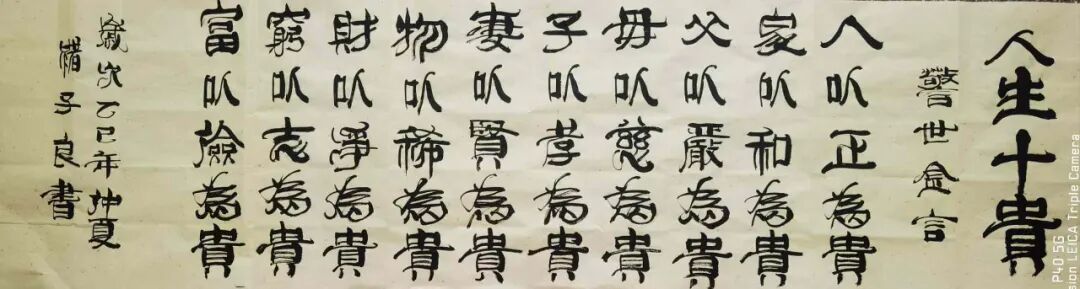 人生十貴
警世金言
人以正為貴
家以和為貴
父以嚴為貴
母以慈為貴
子以孝為貴
妻以賢為貴
物以稀為貴
財以淨為貴
窮以志為貴
富以儉為貴
歲次乙巳年仲夏
子良書
P40 5G
sion LEICA Triple Camera